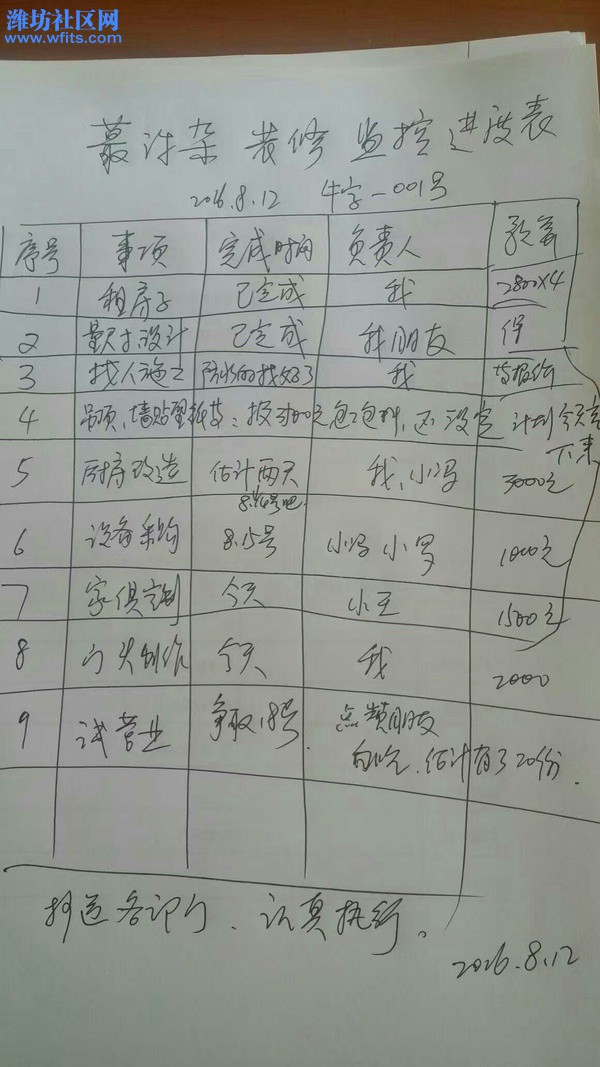 潍坊社区网
www.wfits.com
装修 监控进度表
2016.8.12 牛字-001号
序号 事项 完成时间 负责人 预算
1 租房子 已完成 我 2800×4
2 量尺寸设计 已完成 我朋友 保
3 找人施工 防水的找好了 我 等报价
4 吊顶、墙贴壁纸等:报 包工包料,还没定 计划今天定下来
5 厨房改造 估计两天 我、小冯 3000元
8.16号吧
6 设备采购 8.15号 小冯 小罗 1000元
7 家俱定制 今天 小王 1500元
8 门头制作 今天 我 2000
9 试营业 争取18号. 点赞朋友
白吃.估计有了20份.
抄送各部门、认真执行。
2016.8.12